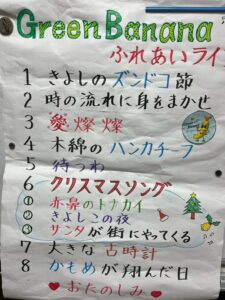 Green Banana
ふれあいライ
1 きよしのズンドコ節
2 時の流れに身をまかせ
3 愛燦燦
4 木綿のハンカチーフ
5 待つわ
6 クリスマスソング
① 赤鼻のトナカイ
② きよしこの夜
③ サンタが街にやってくる
7 大きな古時計
8 かもめが翔んだ日
♥ おたのしみ ♥